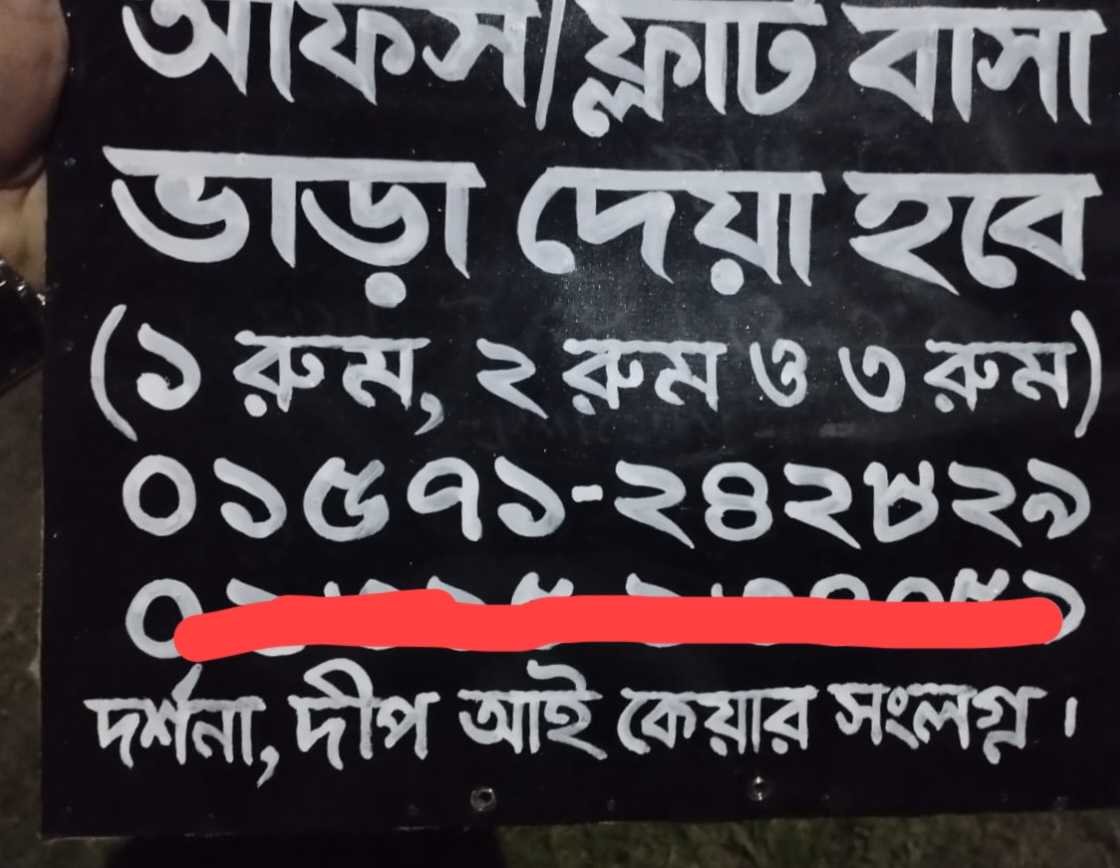 অফিস/ফ্লাট বাসা
ভাড়া দেয়া হবে
(১ রুম, ২ রুম ও ৩ রুম)
০১৫৭১-২৪২৮২৯
দর্শনা, দীপ আই কেয়ার সংলগ্ন।